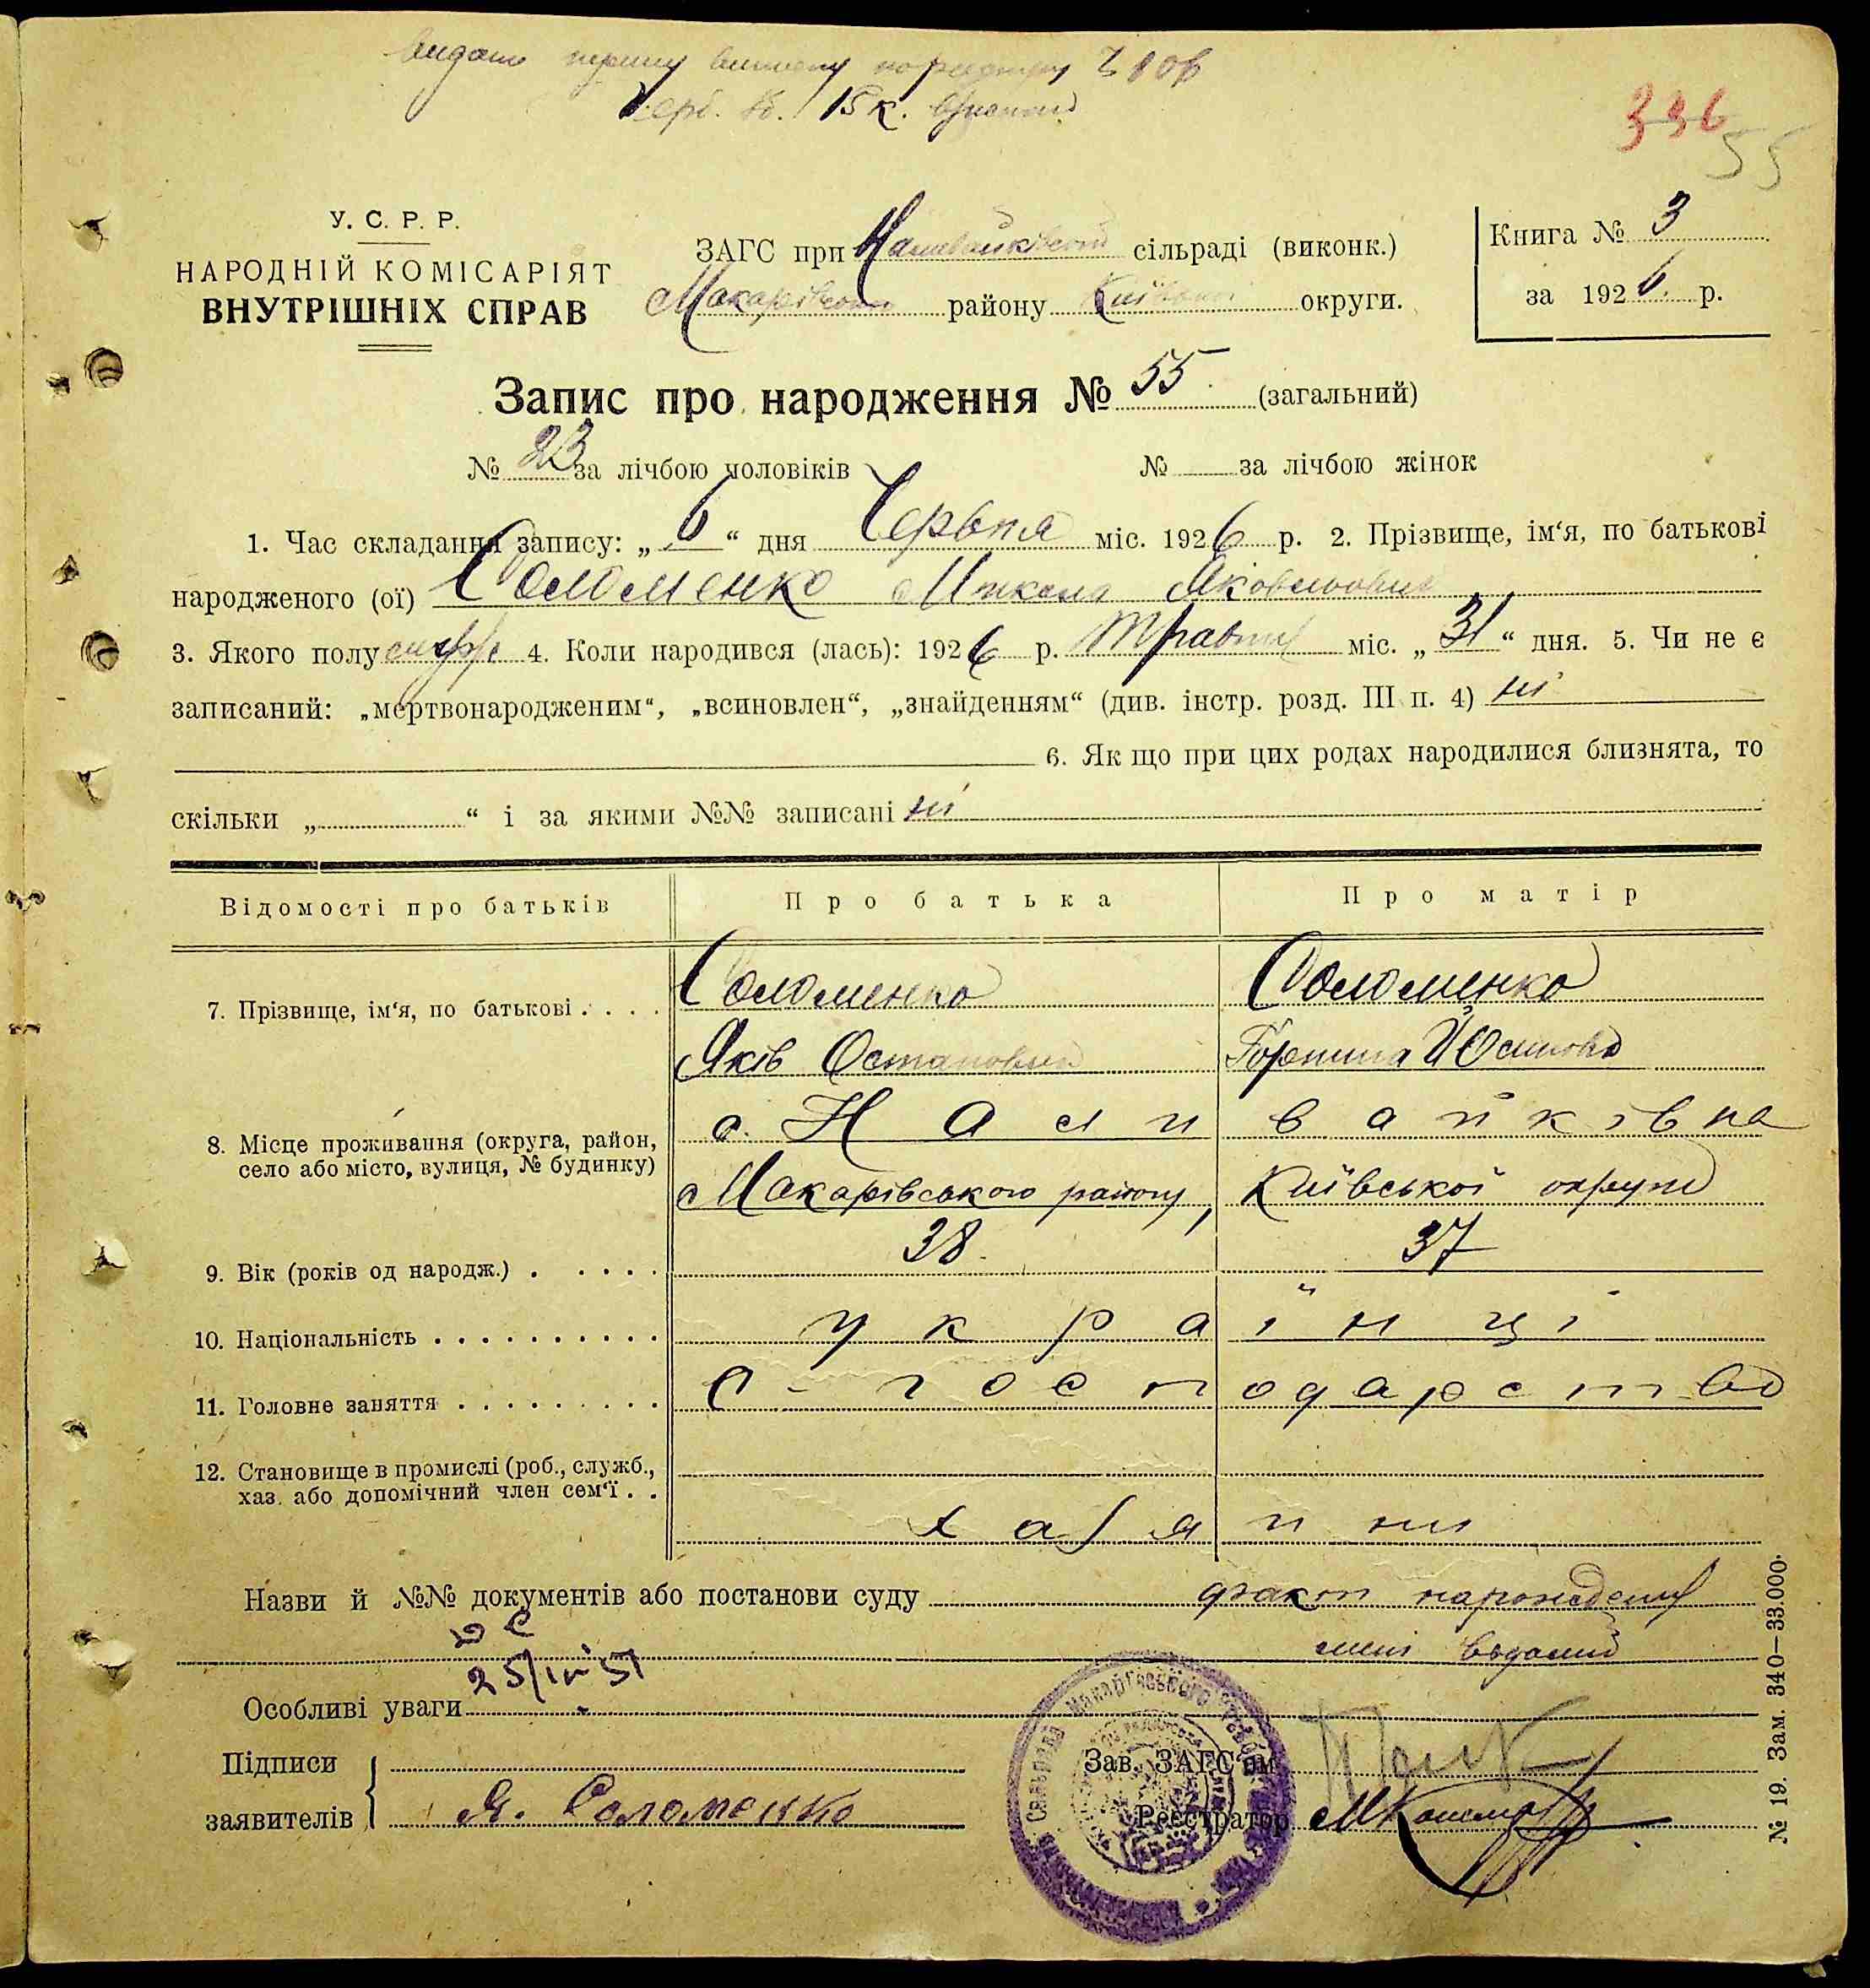 336
55
У. С. Р. Р.
НАРОДНІЙ КОМІСАРІЯТ
ВНУТРІШНІХ СПРАВ
ЗАГС при Наливайківській сільраді (виконк.)
Макарівського району Київської округи.
Книга № 3
за 1926 р.
Запис про народження № 55 (загальний)
№ 23 за лічбою чоловіків № за лічбою жінок
1. Час складання запису: „6“ дня Червня міс. 1926 р. 2. Прізвище, ім'я, по батькові
народженого (ої) Соломенко Микола Яковлевович
3. Якого полу 4. Коли народився (лась): 1926 р. Травня міс. „31“ дня. 5. Чи не є
записаний: „мертвонародженим“, „всиновлен“, „знайденням“ (див. інстр. розд. III п. 4) ні
6. Як що при цих родах народилися близнята, то
скільки „ “ і за якими №№ записані ні
Відомості про батьків Про батька Про матір
7. Прізвище, ім'я, по батькові Соломенко Соломенко
Яків Остапович Горпина
8. Місце проживання (округа, район, село або місто, вулиця, № будинку) с. Наливайківка
Макарівського району, Київської округи
9. Вік (років од народж.) 38 37
10. Національність українці
11. Головне заняття с-господарство
12. Становище в промислі (роб., служб., хаз. або допомічний член сем'ї
хазяини
Назви й №№ документів або постанови суду факт народження
мені відомий
Особливі уваги
Підписи
заявителів Я. Соломенко
Зав. ЗАГС'ом
Реєстратор
№ 19. Зам. 340—33.000.